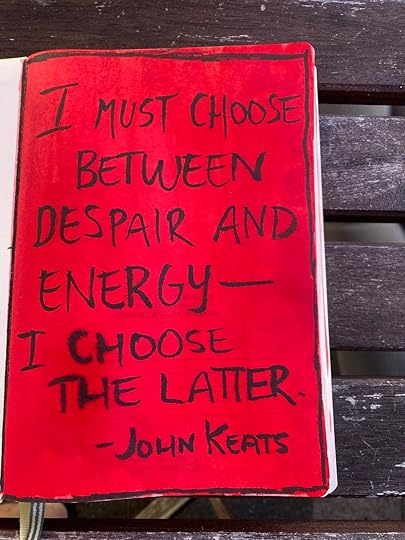 I MUST CHOOSE
BETWEEN
DESPAIR AND
ENERGY—
I CHOOSE
THE LATTER.
-JOHN KEATS